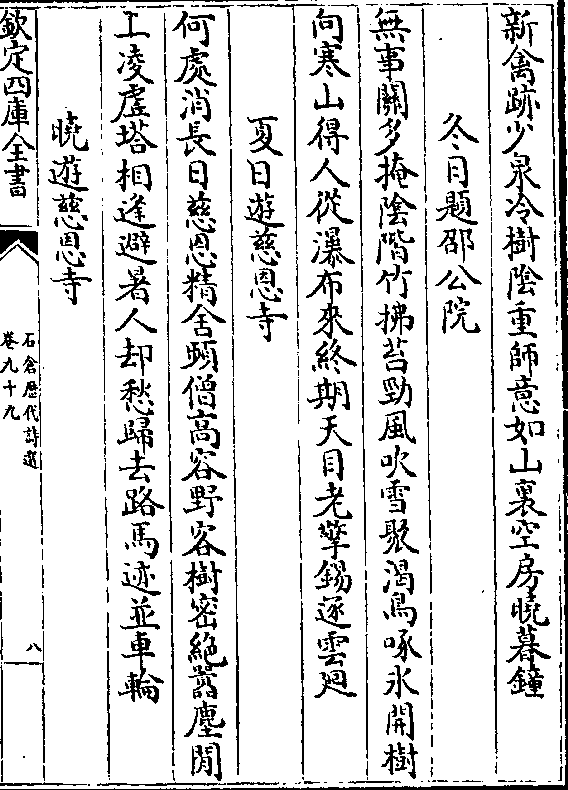 新禽跡少泉冷樹陰重師意如山裏空房曉暮鐘
冬日題邵公院
無事關多掩陰階竹拂苔勁風吹雪聚渴鳥啄氷開樹
向寒山得人從瀑布來終期天目老擎錫逐雲廻
夏日遊慈恩寺
何處消長日慈恩精舍頻僧高容野客樹密絶囂塵閒
上凌虚塔相逢避暑人却愁歸去路馬迹並車輪
曉遊慈恩寺
欽定四庫全書
石倉歴代詩選
卷九十九
八